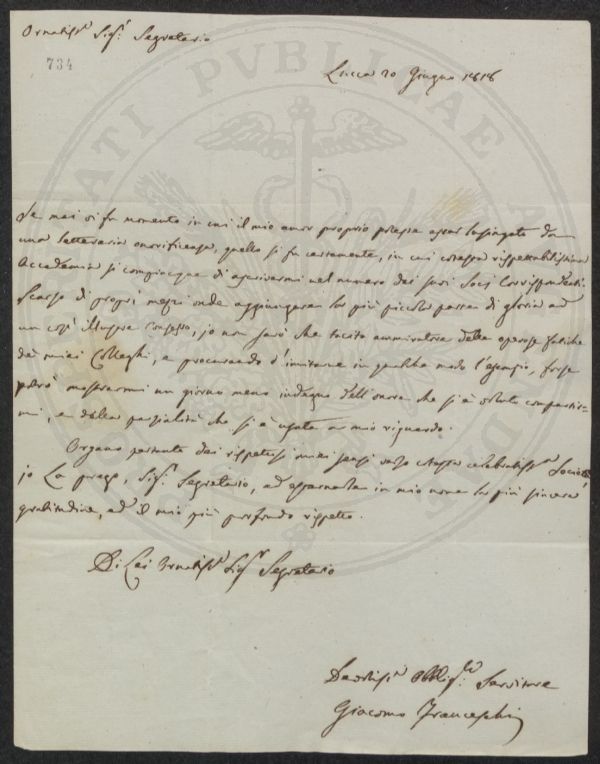 Ornatiss.mo Sig.r Segretario
734
Lucca 20 Giugno 1818
Se mai vi fu momento in cui il mio amor proprio potesse esser lusingato da
una letteraria onorificenza, quello si fu certamente, in cui cotesta rispettabilissima
Accademia si compiacque di ascrivermi nel numero dei suoi Socj Corrispondenti.
Scarso di proprj mezzi onde aggiungere la più piccola parte di gloria ad
un così illustre Consesso, jo non sarò che tacito ammiratore delle operose fatiche
de' miei Colleghi, e procurando d'imitarne in qualche modo l'esempio, forse
potrò mostrarmi un giorno meno indegno dell'onore che si è voluto compartir-
mi, e della parzialità che si è usata a mio riguardo.
Organo pertanto dei rispettosi miei sensi verso cotesta celebratiss.ma Società
jo La prego, Sig.r Segretario, ad esternare in mio nome la più sincera
gratitudine, ed il mio più profondo rispetto.
Di Lei Ornatiss.mo Sig.r Segretario
Devotiss.mo Obblig.mo Servitore
Giacomo Franceschi
PVBLICAE